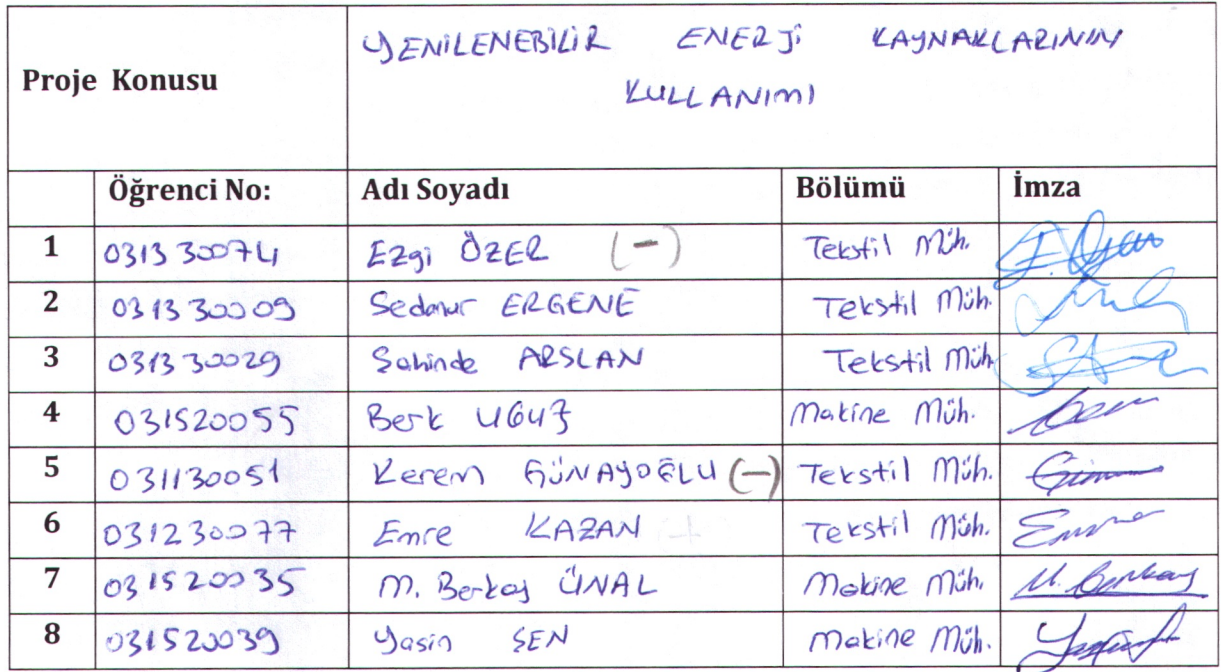 Proje Konusu
YENİLENEBİLİR ENERJİ KAYNAKLARININ
KULLANIMI
Öğrenci No: Adı Soyadı Bölümü İmza
1 031330074 Ezgi ÖZER (-) Tekstil Müh. E. Özer
2 031330009 Sedanur ERGENE Tekstil Müh.
3 031330029 Sahinde ARSLAN Tekstil Müh
4 031520055 Berk UGUZ Makine Müh.
5 031130051 Kerem GÜNAYOĞLU (-) Tekstil Müh.
6 031230077 Emre KAZAN Tekstil Müh. Emre
7 031520035 M. Berkay ÜNAL Makine Müh. M. Berkay
8 031520039 Yasin ŞEN Makine Müh.